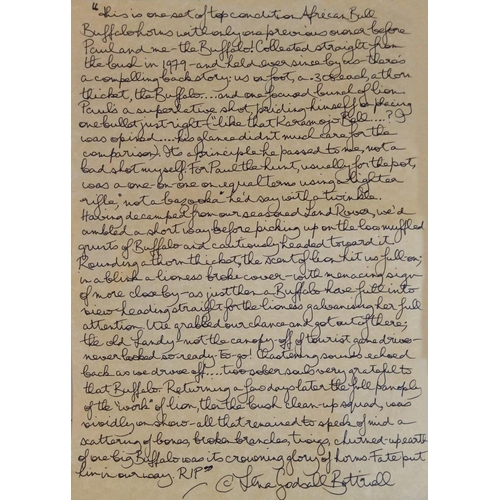 "This is one set of top condition African Bull
Buffalo horns with only one previous owner before
Paul and me - the Buffalo! Collected straight from
the bush in 1979 - and held ever since by us - there's
a compelling backstory: us on foot, a .30 each, a thorn
thicket, the Buffalo.... and one focused bunch of lion.
Paul's a superlative shot, priding himself on placing
one bullet, just right ("like that Karamojo Bell....?" I
was opined.... his glance didn't much care for the
comparison). It's a principle he passed to me, not a
bad shot myself. For Paul the hunt, usually for the pot,
was a one-on-one on equal terms using a lighter
rifle, "not a bazooka" he'd say with a twinkle.
Having decamped from our seasoned Land Rover, we'd
ambled a short way before picking up on the low muffled
grunts of Buffalo and cautiously headed toward it.
Rounding a thorn thicket, the scent of lion hit us full on;
in a blink a lioness broke cover - with menacing sign
of more close by - as just then a Buffalo hove full into
view - heading straight for the lioness galvanising her full
attention. We grabbed our chance and got out of there;
the old Landy - not the canopy-off of tourist game drives -
never looked so ready-to-go! Chastening sounds echoed
back as we drove off.... two sober souls very grateful to
that Buffalo. Returning a few days later the full panoply
of the "work" of lion, then the bush clean-up squad, was
vividly on show - all that remained to speak of mid a
scattering of bones, broken branches, twigs, churned-up earth
of one big Buffalo was its crowning glory of horns. Fate put
him in our way. RIP"
© Lena Godsall Bottriell